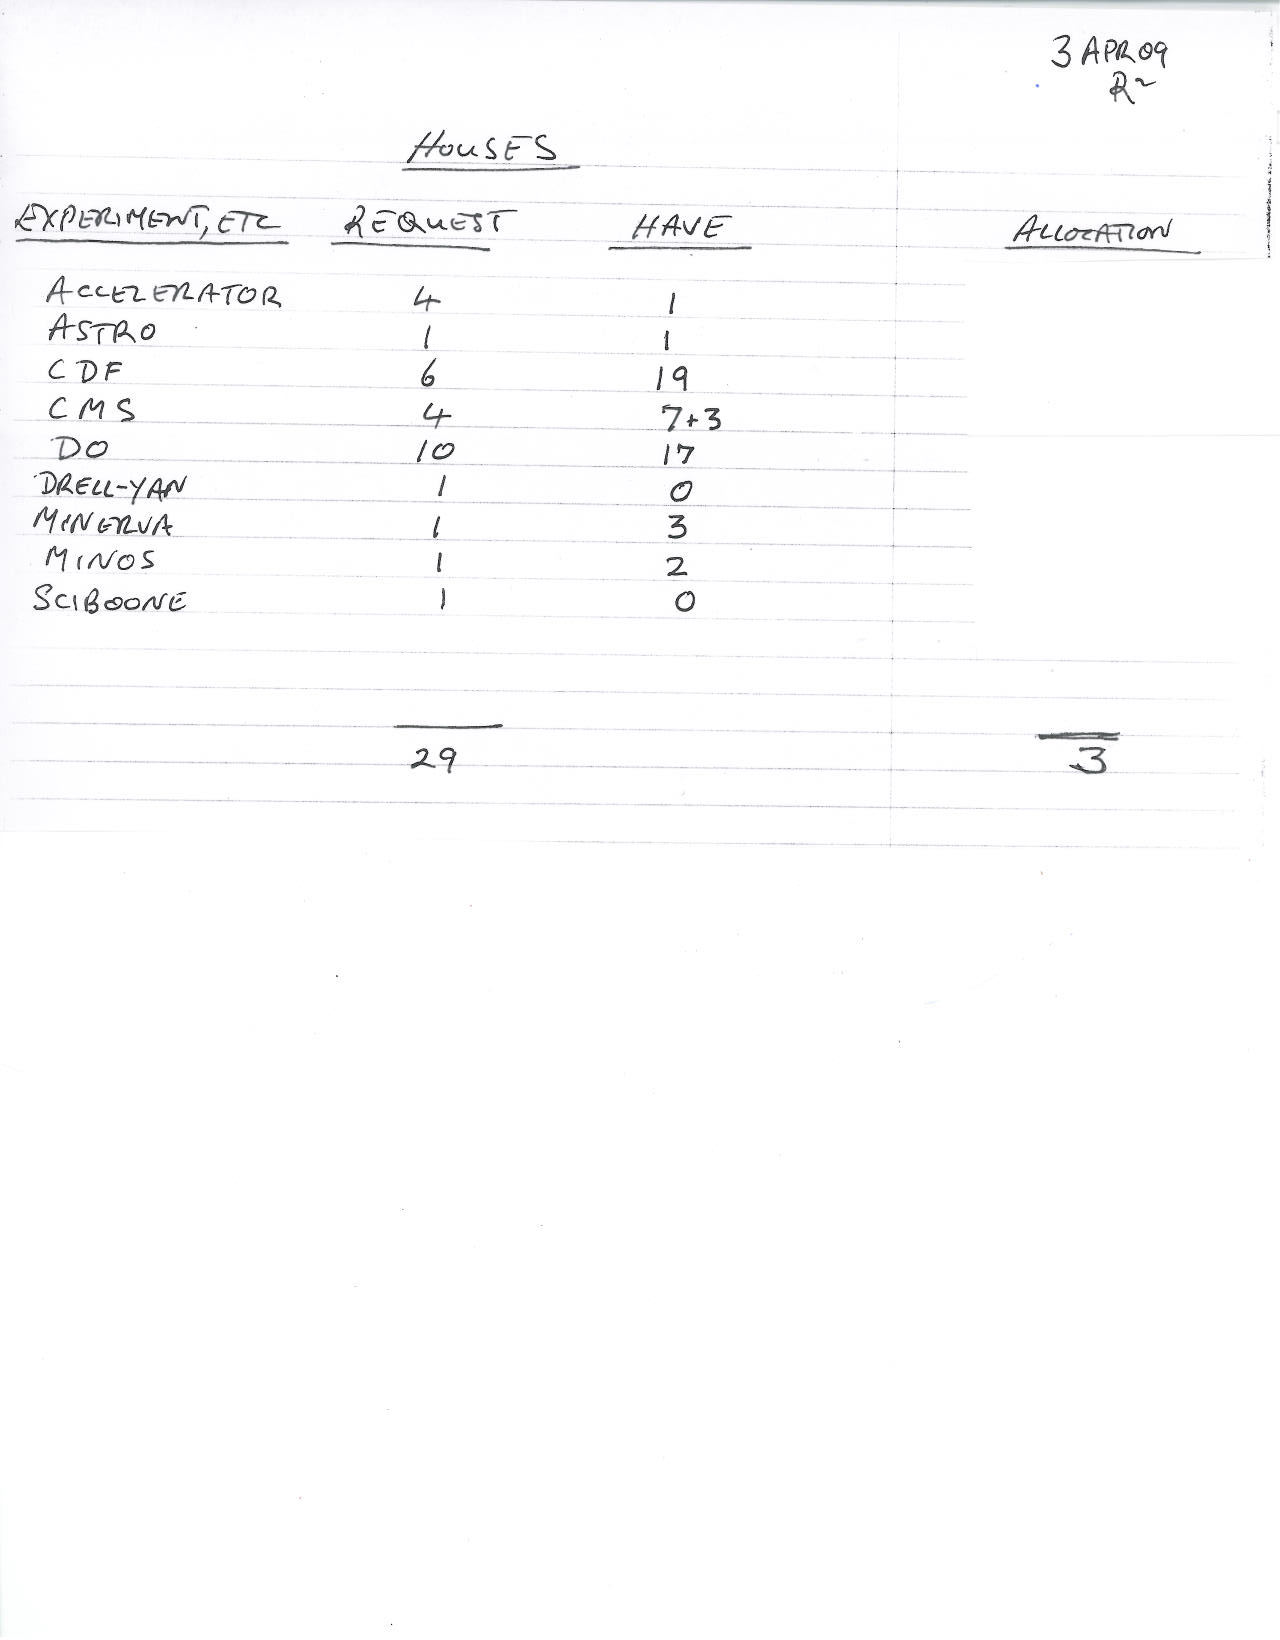 3 APR 09
R2
HOUSES
EXPERIMENT, ETC REQUEST HAVE ALLOCATION
ACCELERATOR 4 1
ASTRO 1 1
CDF 6 19
CMS 4 7+3
DO 10 17
DRELL-YAN 1 0
MINERVA 1 3
MINOS 1 2
SCIBOONE 1 0
29 3